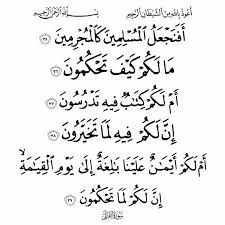 أعوذ بالله من الشيطان الرجيم بسم الله الرحمن الرحيم
أَفَنَجْعَلُ الْمُسْلِمِينَ كَالْمُجْرِمِينَ ٣٥
مَا لَكُمْ كَيْفَ تَحْكُمُونَ ٣٦
أَمْ لَكُمْ كِتَابٌ فِيهِ تَدْرُسُونَ ٣٧
إِنَّ لَكُمْ فِيهِ لَمَا تَخَيَّرُونَ ٣٨
أَمْ لَكُمْ أَيْمَانٌ عَلَيْنَا بَالِغَةٌ إِلَىٰ يَوْمِ الْقِيَامَةِ ۙ
إِنَّ لَكُمْ لَمَا تَحْكُمُونَ ٣٩
سورة القلم